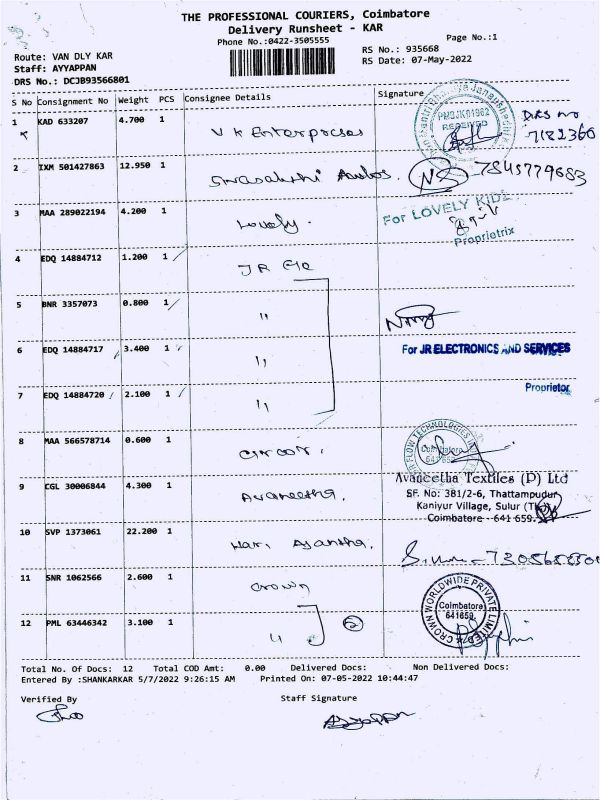 THE PROFESSIONAL COURIERS, Coimbatore
Delivery Runsheet - KAR
Phone No.:0422-3505555
Page No.:1
Route: VAN DLY KAR
Staff: AYYAPPAN
DRS No.: DCJB93566801
RS No.: 935668
RS Date: 07-May-2022
S No Consignment No Weight PCS Consignee Details Signature
1 KAD 633207 4.700 1 V K Enterprises
PMBJK01982
RECEIVED
DRS no
7182360
2 IXM 501427863 12.950 1 NS 7845779683
3 MAA 289022194 4.200 1 Lovely.
For LOVELY KIDS
Proprietrix
4 EDQ 14884712 1.200 1 JR Ele
5 BNR 3357073 0.800 1 "
6 EDQ 14884717 3.400 1 "
For JR ELECTRONICS AND SERVICES
7 EDQ 14884720 2.100 1 "
Proprietor
8 MAA 566578714 0.600 1
FLOW TECHNOLOGIES
Coimbatore
9 CGL 30006844 4.300 1 Avaneetha.
Avaneetha Textiles (P) Ltd
SF. No: 381/2-6, Thattampudur
Kaniyur Village, Sulur (Tk)
Coimbatore - 641 659.
10 SVP 1373061 22.200 1 Hari Ajantha.
11 SNR 1062566 2.600 1 Crown
CROWN WORLDWIDE PRIVATE LIMITED
Coimbatore
641659
12 PML 63446342 3.100 1 " 2
Total No. Of Docs: 12 Total COD Amt: 0.00 Delivered Docs: Non Delivered Docs:
Entered By :SHANKARKAR 5/7/2022 9:26:15 AM Printed On: 07-05-2022 10:44:47
Verified By Staff Signature
Ayyappan